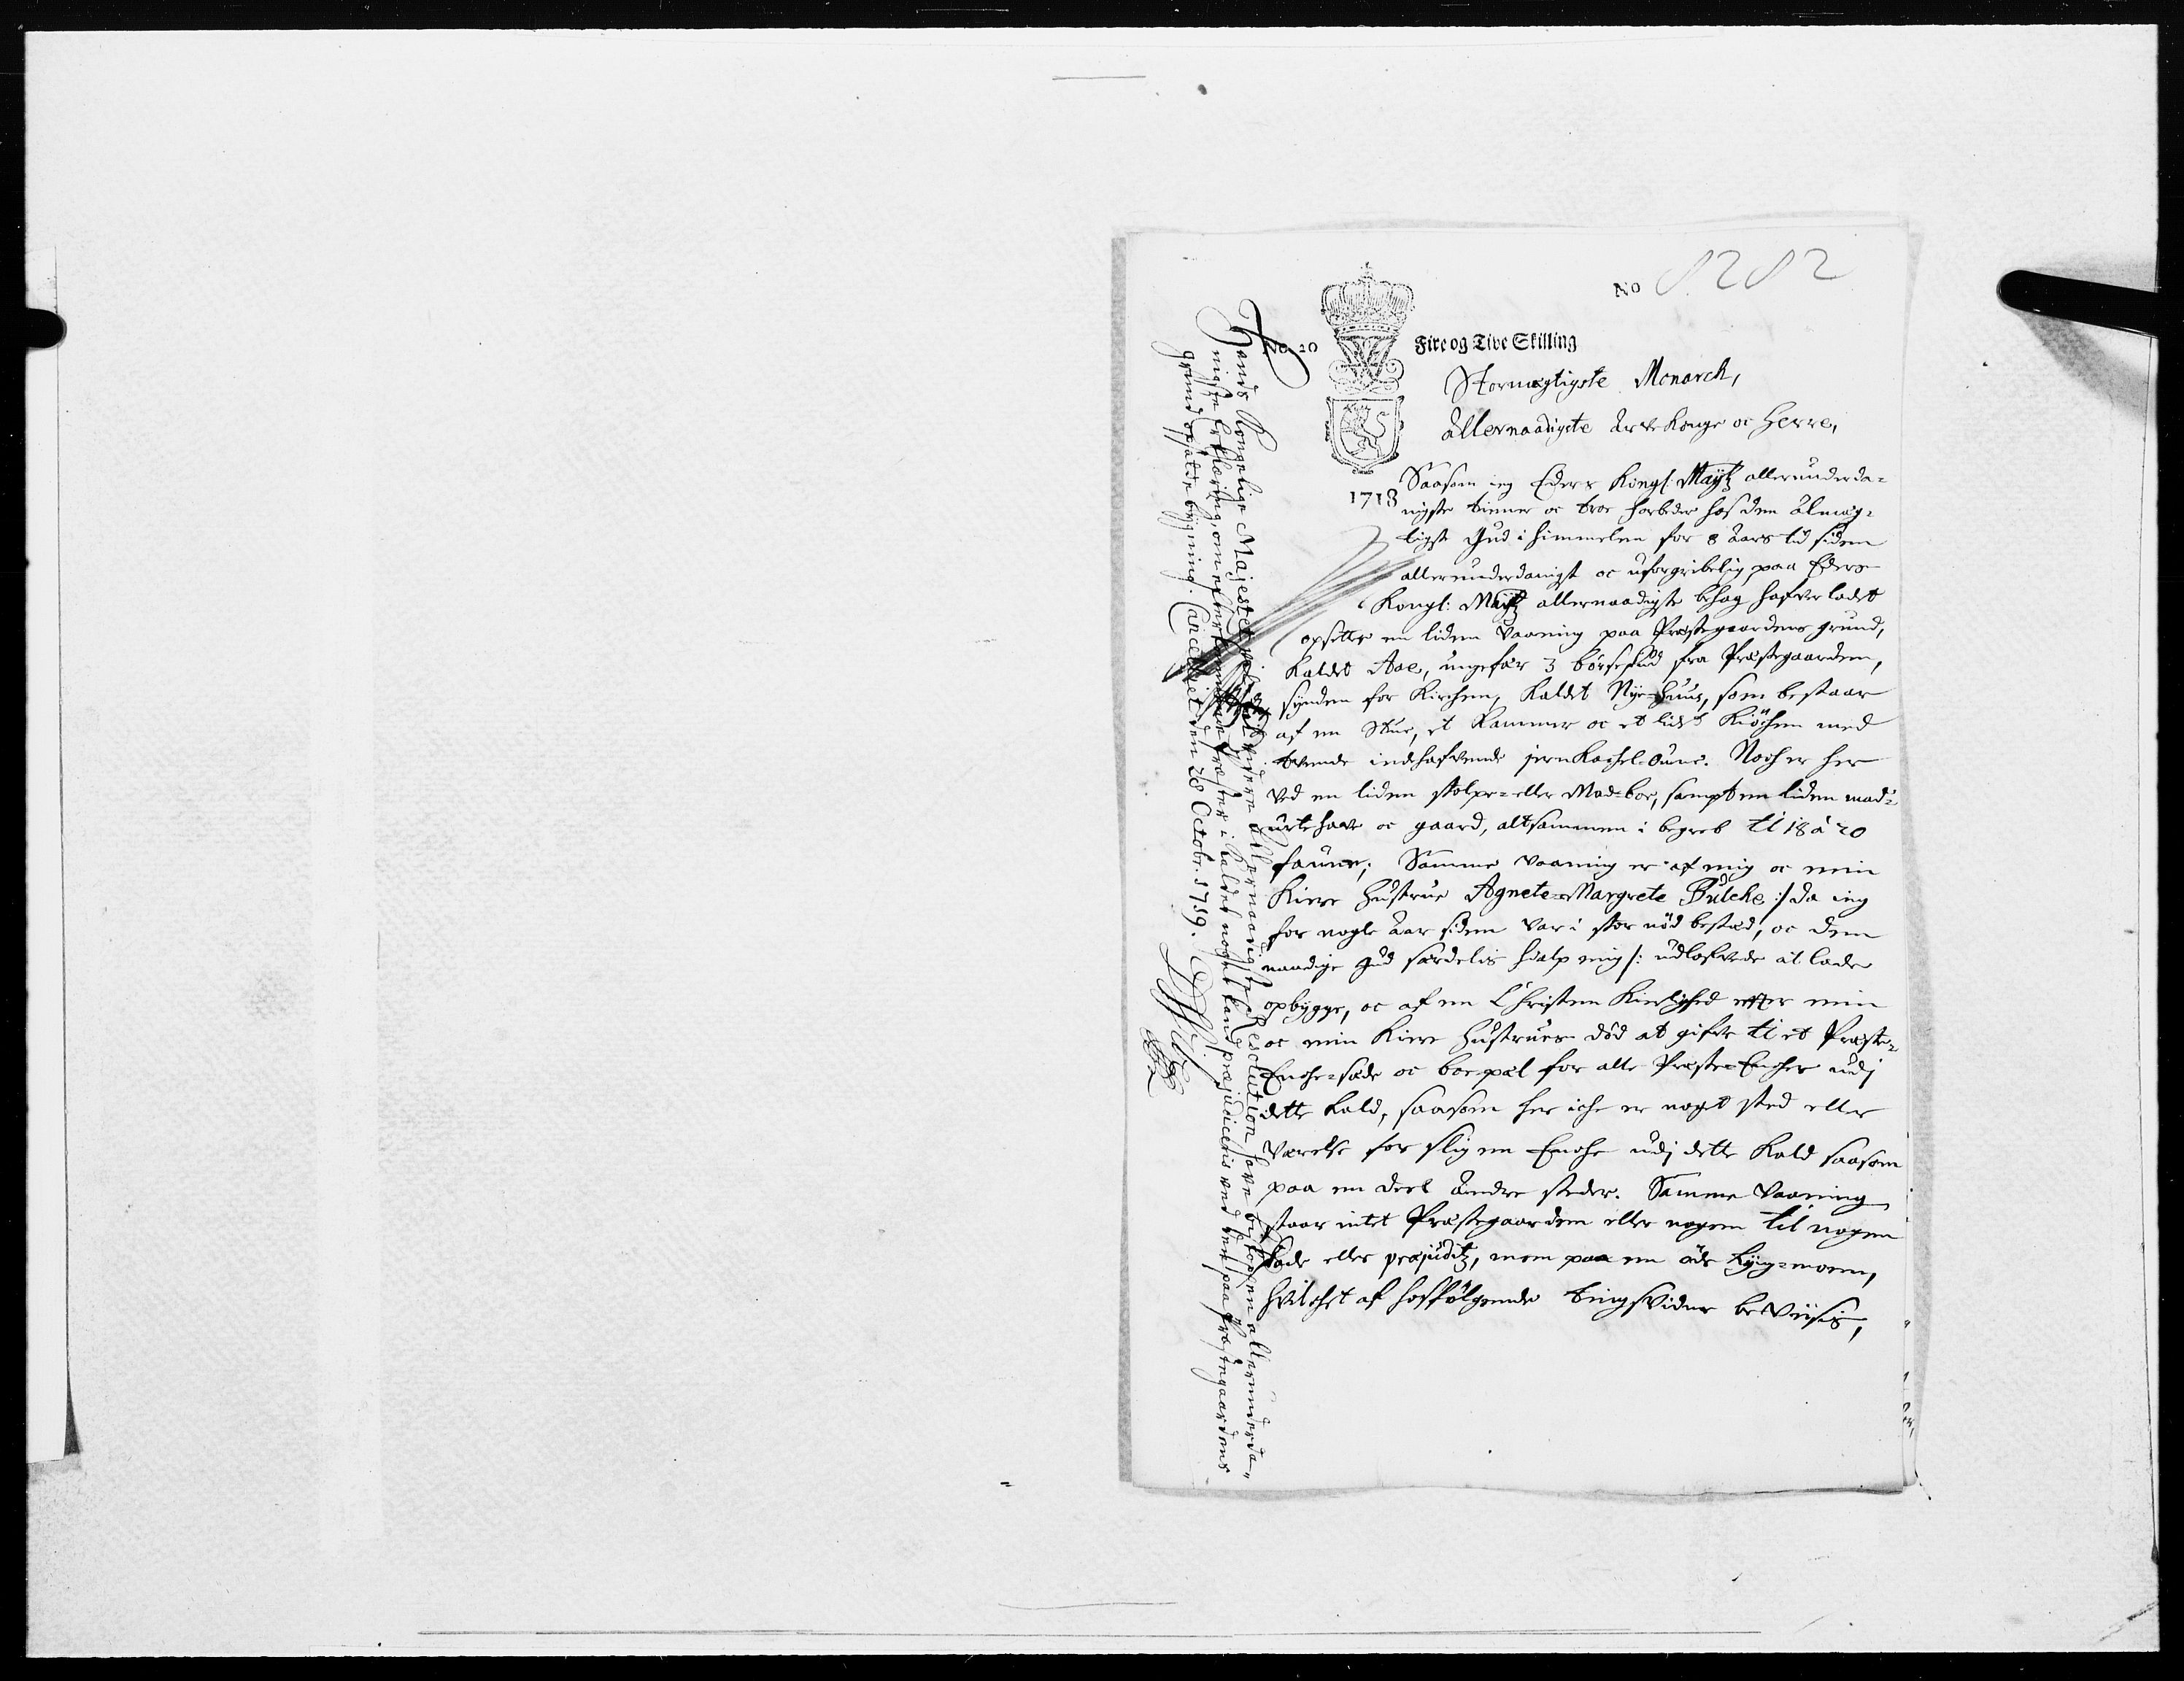 No 8282
No. 20
Fire og Tive Skilling
1718
Stormegtigste Monarch,
Allernaadigste Arve Konge oc Herre,
Saasom ieg Eders Kongl: Maytz allerunderda=
nigste tienner oc troe forbeder hos den Almæg=
tigste Gud i himmelen for 8 Aars tid siden
allerunderdanigst oc uforgribelig paa Eders
Kongl: Maytz allernaadigste behag hafver ladet
opsette en liden Vaaning paa Præstegaardens grund,
kaldet Aae, ungefær 3 børseskud fra Præstegaarden,
synden for Kirchen, kaldet Nÿe-Huus, som bestaar
af en Stue, et Kammer oc et lidet Kiöchen med
tvende indhafvende jern Kachel-Oune. Noch er her
ved en liden stolpe- eller Mad-boe, sampt en liden mad=
urtehave oc gaard, altsammen i begreb til 18 à 20
faune; Samme vaaning er af mig oc min
Kiere Hustrue Agnete-Margrete Bulche :/ da ieg
for nogle Aar siden var i stor nöd bested, oc den
naadige Gud særdelis hialp mig /: udlofvede at lade
opbygge, oc af en Christen Kierlighed efter min
oc min Kiere Hustrues död at gifve til et Præste-
Enche-sæde oc boe-pæl for alle Præste-Encher udj
dette Kald, saasom her iche er noget sted eller
Værelse for slig en Enche udj dette Kald saasom
paa en deel Andre steder. Samme Vaaning
staar intet Præstegaarden eller nogen til nogen
skade eller præjuditz, men paa en öde Lÿng-moen,
hvilchet af hosfölgende tingsvidne beviisis,
Hands Kongelige Majestet vil udi videre allernaadigste Resolution have bispen allerunderda-
nigste Erklæring, om efterkommende Præster i Kaldet noget kand præjudiceris ved den paa Præstegaardens
grund opsatte bÿgning. Cancelliet den 28 Octobr. 1719.